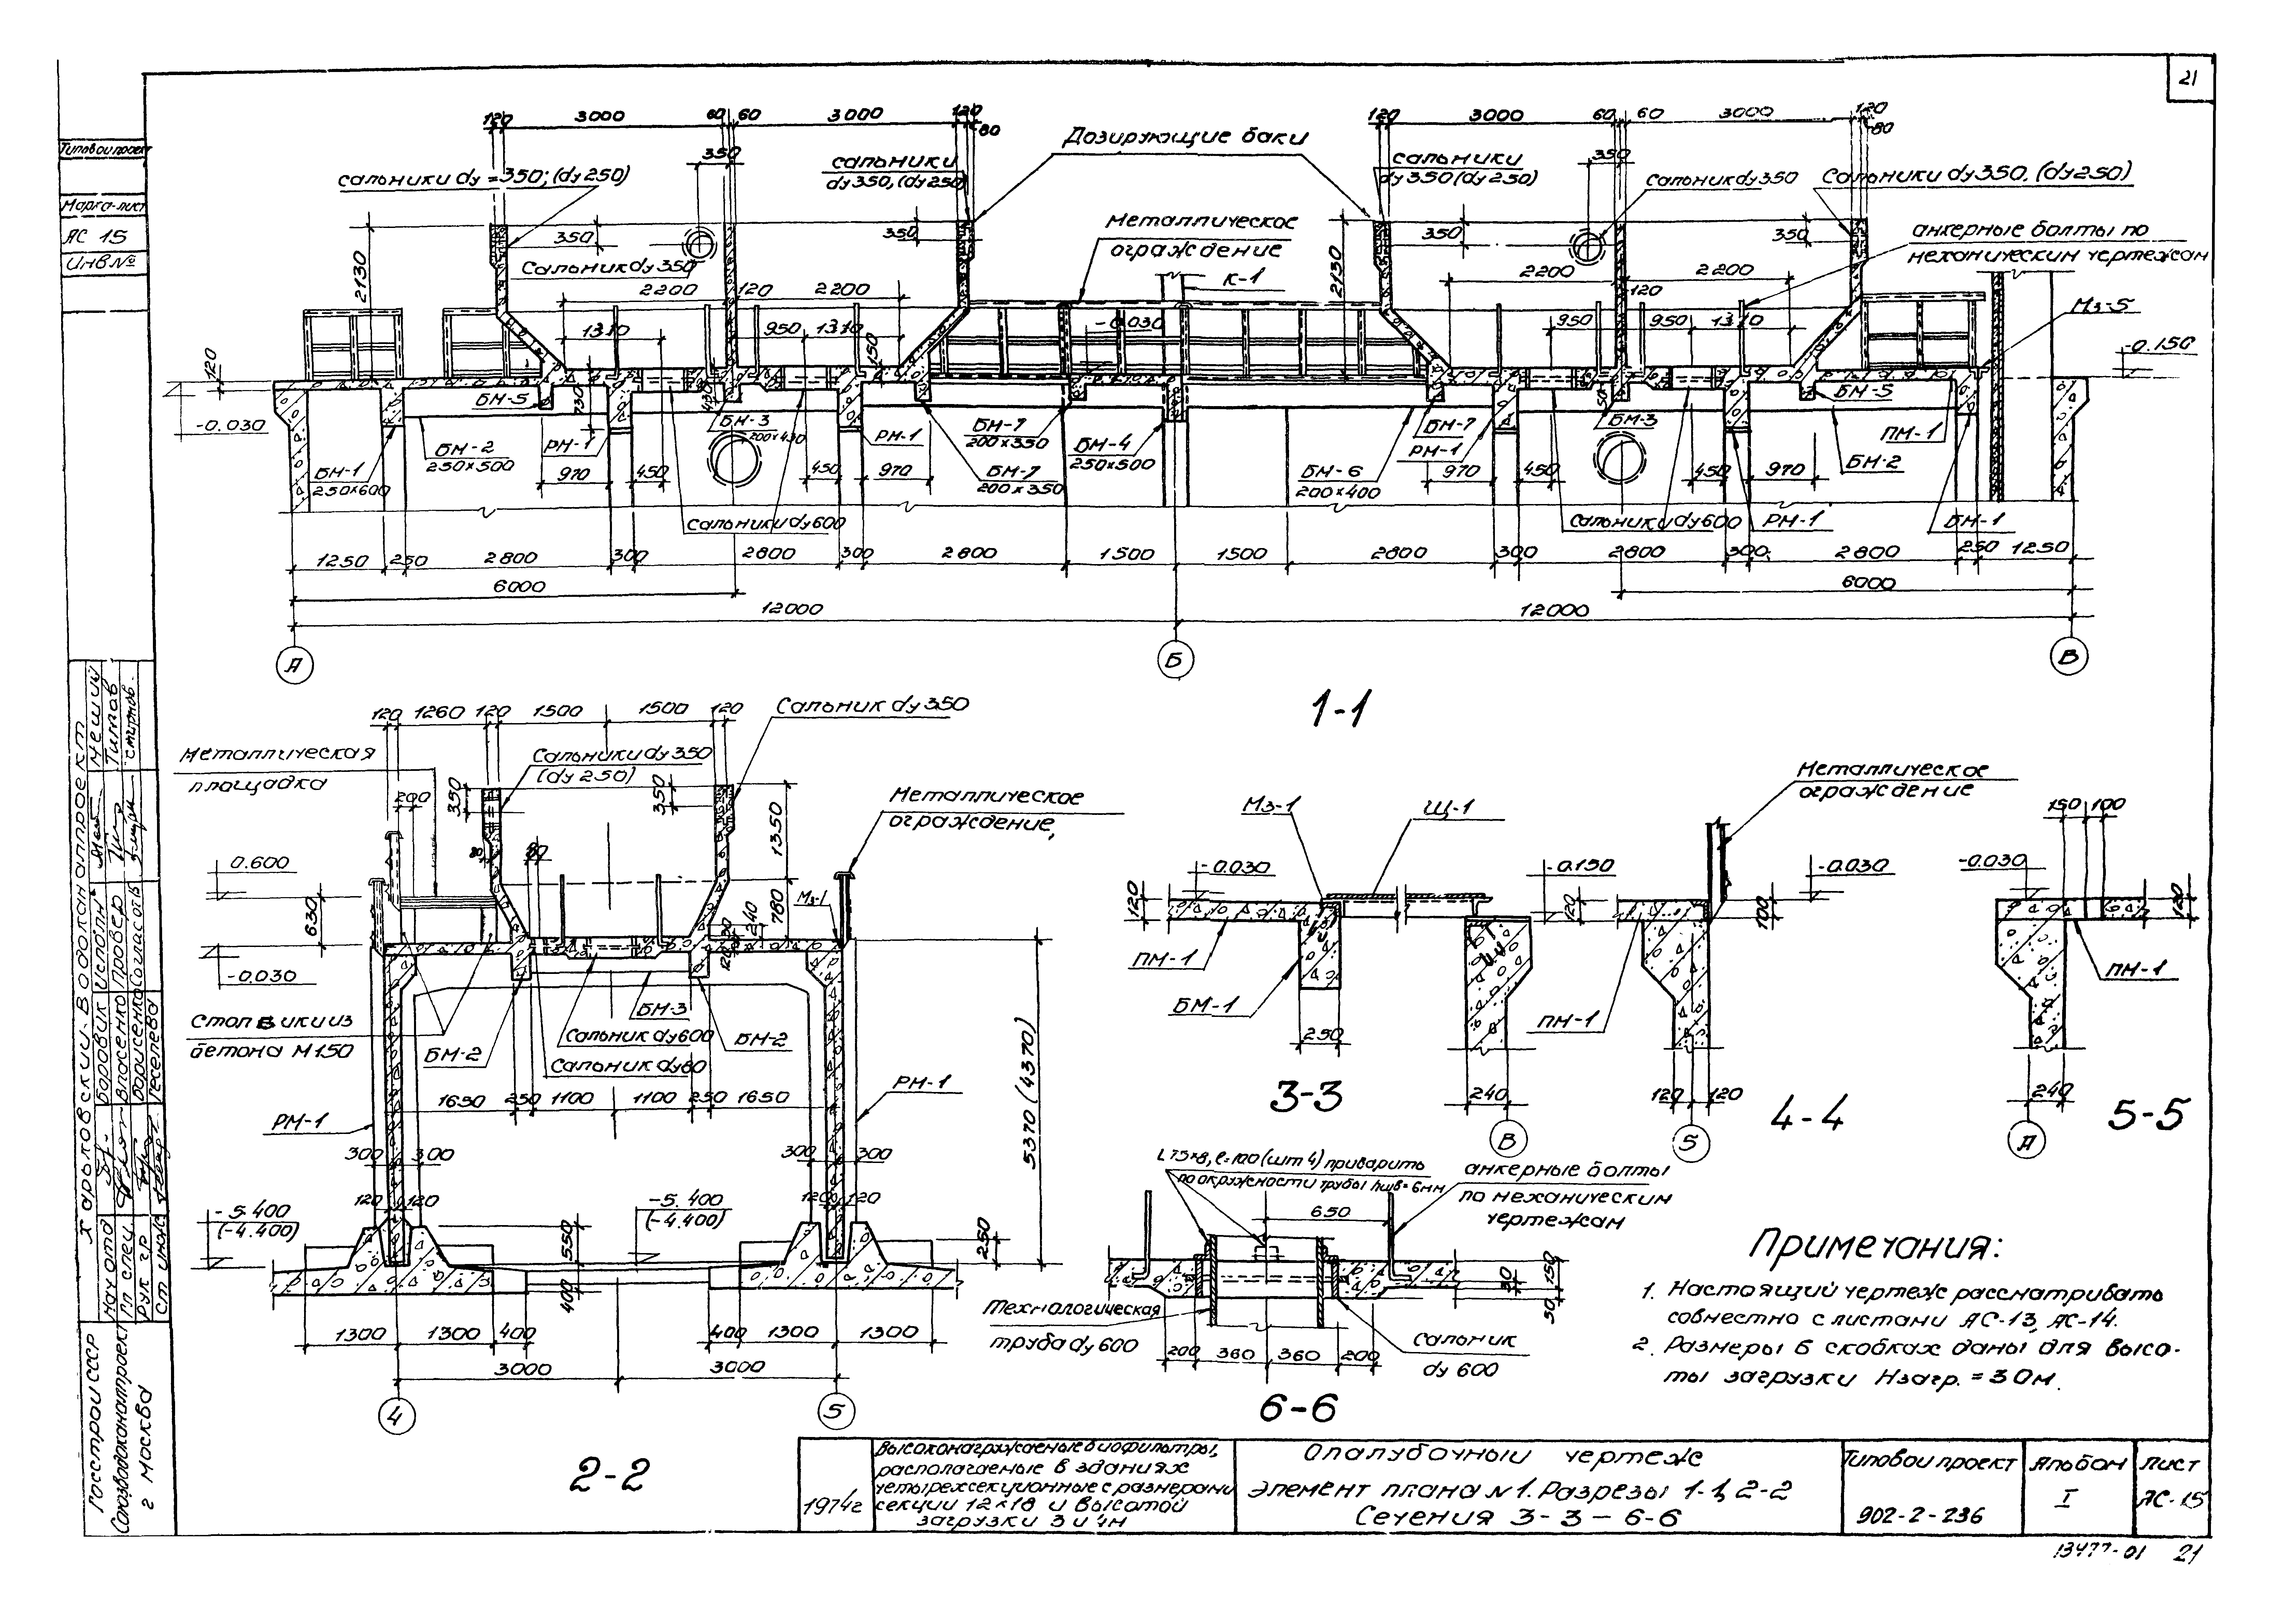 21
Типовой проект
Марка-лист
АС 15
Инв №
120 3000 60 60 3000 120 80
350
сальники dу = 350; (dу 250)
сальники
dу 350, (dу 250)
Дозирующие баки
120 3000 60 60 3000 120 80
350
сальники
dу 350 (dу 250)
сальник dу 350
Сальники dу 350. (dу 250)
2130
350
Сальник dу 350
350
Металлическое
ограждение
К-1
2130
350
350
анкерные болты по
механическим чертежам
2200 120 2200
2200 2200
120
1310 950 1310
150
-0.030
950 950 1310
Мз-5
-0.150
120
-0.030
БМ-5
730
430
БМ-3
200×430
БМ-1
250×600
БМ-2
250×500
РМ-1
РМ-1
БМ-7
200×350
БМ-7
200×350
БМ-4
250×500
БМ-6
200×400
БМ-7
РМ-1
БМ-3
БМ-5
ПМ-1
БМ-2
970 450 450 970
970 450 450 970
Сальники dу 600
Сальники dу 600
РМ-1
БМ-1
1250 250 2800 300 2800 300 2800 1500 1500 2800 300 2800 300 2800 250 1250
6000 6000
12000 12000
А Б В
1-1
120 1260 120 1500 1500 120
Сальник dу 350
Металлическая
площадка
Сальники dу 350
(dу 250)
200
350
350
1350
780
Металлическое
ограждение,
0.600
630
-0.030
80
Мз-1
240
Столбики из
бетона М150
БМ-2
Сальник dу 600
Сальник dу 80
БМ-3
БМ-2
1650 250 1100 1100 250 1650
РМ-1
РМ-1
5370 (4370)
300 300 300 300
120 120 120 120
-5.400
(-4.400)
-5.400
(-4.400)
550
400
250
1300 1300 400 400 1300 1300
3000 3000
4 5
2-2
Мз-1
Щ-1
-0.030
120
-0.150
ПМ-1
БМ-1
250
240
В
3-3
Металлическое
ограждение
-0.030
120
100
ПМ-1
120 120
5
4-4
150 100
-0.030
120
ПМ-1
240
А
5-5
L 75×8, ℓ=100 (шт 4) приварить
по окружности трубы hшв = 6мм
анкерные болты
по механическим
чертежам
650
150
50
Технологическая
труба dу 600
200 360 360 200
сальник
dу 600
6-6
Примечания:
1. Настоящий чертеж рассматривать
совместно с листами АС-13, АС-14.
2. Размеры в скобках даны для высо-
ты загрузки Нзагр. = 3 0м.
Харьковский Водоканалпроект
Нач отд Боровик Исполн Неший
Гл спец Власенко Провер Типав
Рук гр Борисенко Согласов
Ст инж Теселева
Госстрой СССР
Союзводоканалпроект
г Москва
1974г
Высоконагружаемые биофильтры,
располагаемые в зданиях
четырехсекционные с размерами
секции 12×18 и высотой
загрузки 3 и 4м
Опалубочный чертеж
Элемент плана №1. Разрезы 1-1, 2-2
Сечения 3-3 – 6-6
Типовой проект
902-2-236
Альбом
I
Лист
АС-15
13477-01 21